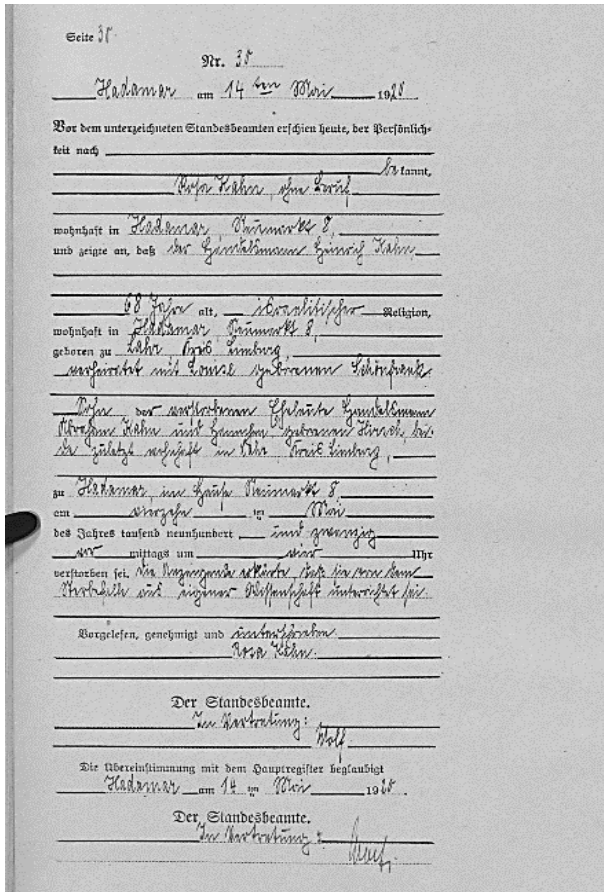 Seite 38.
Nr. 38
Hadamar am 14 ten Mai 1920
Vor dem unterzeichneten Standesbeamten erschien heute, der Persönlich-
keit nach
be kannt,
Rosa Kahn, ohne Beruf,
wohnhaft in Hadamar, Neumarkt 8,
und zeigte an, daß der Handelsmann Heinrich Kahn,
68 Jahre alt, israelitischer Religion,
wohnhaft in Hadamar, Neumarkt 8,
geboren zu Lahr, Kreis Limburg,
verheiratet mit geborenen Schönfrank
Sohn der verstorbenen Eheleute Handelsmann
Abraham Kahn und Hannchen geborenen Hirsch, bei-
de zuletzt wohnhaft in Lahr Kreis Limburg,
zu Hadamar, im Hause Neumarkt 8,
am vierzehn ten Mai
des Jahres tausend neunhundert und zwanzig
vor mittags um vier Uhr
verstorben sei. Die Anzeigende erklärte, daß sie von dem
Sterbefalle aus eigener Wissenschaft unterrichtet sei.
Vorgelesen, genehmigt und unterschrieben.
Rosa Kahn.
Der Standesbeamte.
In Vertretung:
Wolf.
Die Übereinstimmung mit dem Hauptregister beglaubigt
Hadamar am 14 ten Mai 1920.
Der Standesbeamte.
In Vertretung:
Wolf.